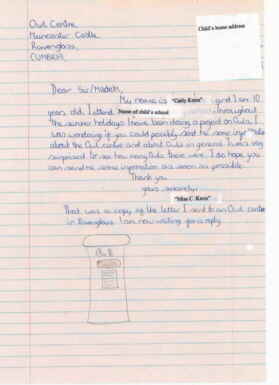 Owl Centre
Muncaster Castle
Ravenglass,
CUMBRIA
Child's home address
Dear Sir/Madam,
My name is "Carly Keen" and I am 10
years old. I attend Name of child's school Throughout
the summer holidays I have been doing a project on Owls. I
was wondering if you could possibly send me some info
about the Owl centre and about Owls in general. I was very
surprised to see how many Owls there were. I do hope you
can send me some information as soon as possible.
Thank you
yours sincerely,
"Miss C. Keen"
That was a copy of the letter I sent to an Owl centre
in Ravenglass. I am now waiting for a reply.